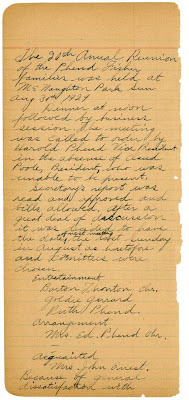 The 20th Annual Reunion
of the Phend Fisher
families was held at
McNaughton Park Sun
Aug 30th 1929
Dinner at noon
followed by business
session. The meeting
was called to order by
Harold Phend Vice President
in the absence of
Poole, President, who was
unable to be present.
Secretary's report was
read and approved and
bills allowed. After a
great deal of discussion
it was decided to have
the date, of next meeting the Sunday
in August as before
and Committees were
chosen.
Entertainment
Burton Thornton chr.
Goldie Garard
Ruth Phend.
Arrangment
Mrs. Ed. Phend chr.
Acquainted
Mrs. John Ernest.
Because of general
dissatisfaction with